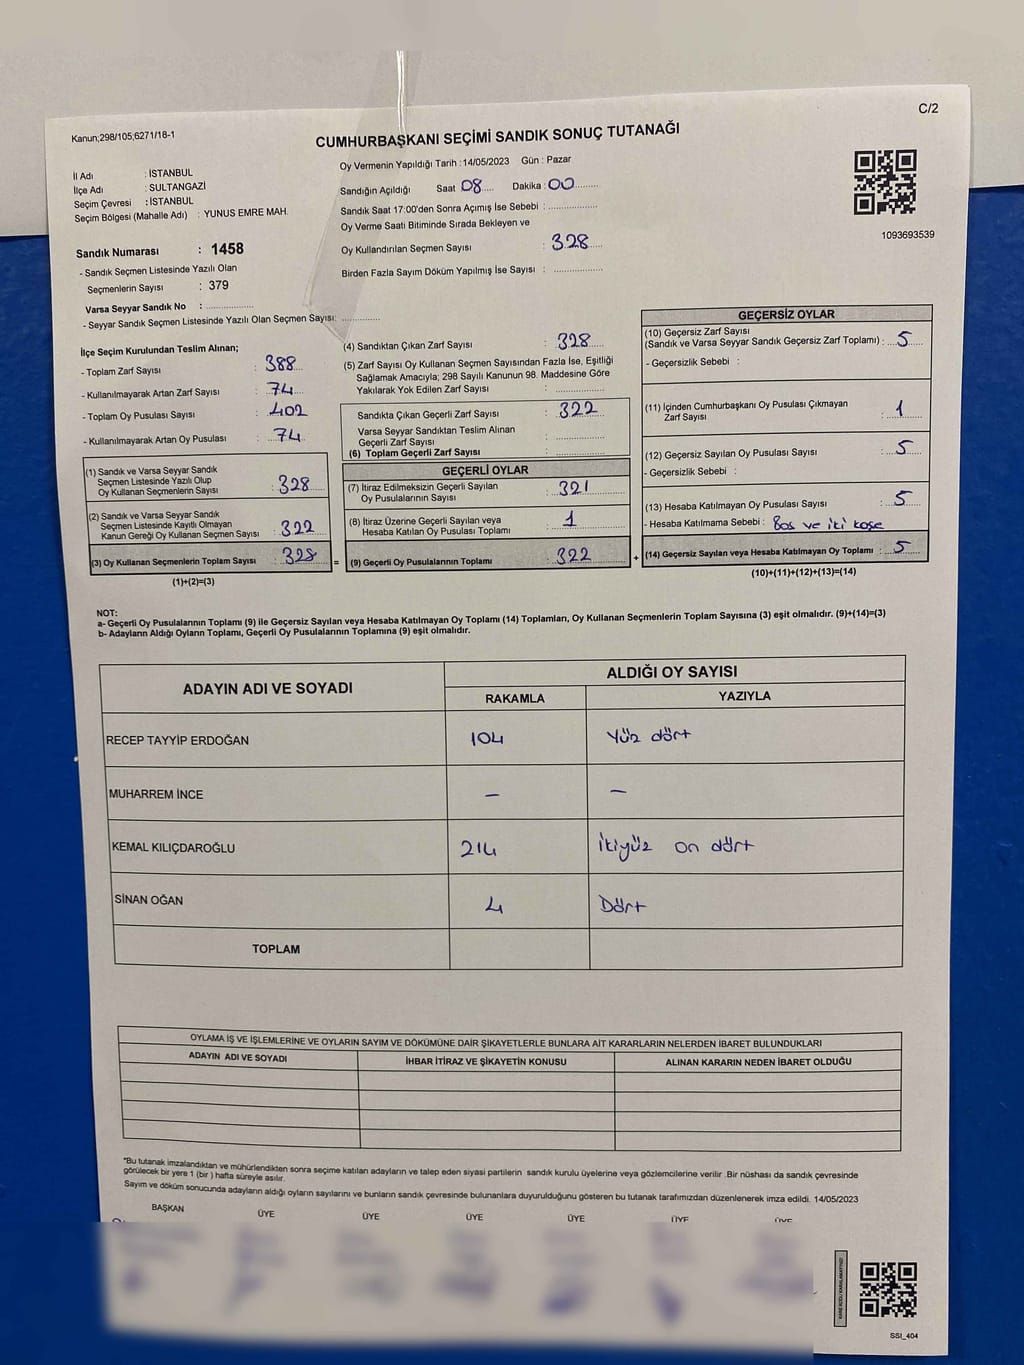 C/2
Kanun;298/105;6271/18-1
CUMHURBAŞKANI SEÇİMİ SANDIK SONUÇ TUTANAĞI
İl Adı : İSTANBUL
İlçe Adı : SULTANGAZİ
Seçim Çevresi : İSTANBUL
Seçim Bölgesi (Mahalle Adı) : YUNUS EMRE MAH.
Sandık Numarası : 1458
- Sandık Seçmen Listesinde Yazılı Olan
Seçmenlerin Sayısı : 379
Varsa Seyyar Sandık No :
- Seyyar Sandık Seçmen Listesinde Yazılı Olan Seçmen Sayısı:
Oy Vermenin Yapıldığı Tarih : 14/05/2023 Gün : Pazar
Sandığın Açıldığı Saat 08 Dakika : 00
Sandık Saat 17:00'den Sonra Açımış İse Sebebi :
Oy Verme Saati Bitiminde Sırada Bekleyen ve
Oy Kullandırılan Seçmen Sayısı : 328
Birden Fazla Sayım Döküm Yapılmış İse Sayısı :
1093693539
İlçe Seçim Kurulundan Teslim Alınan;
- Toplam Zarf Sayısı : 388
- Kullanılmayarak Artan Zarf Sayısı : 74
- Toplam Oy Pusulası Sayısı : 402
- Kullanılmayarak Artan Oy Pusulası : 74
(1) Sandık ve Varsa Seyyar Sandık
Seçmen Listesinde Yazılı Olup
Oy Kullanan Seçmenlerin Sayısı : 328
(2) Sandık ve Varsa Seyyar Sandık
Seçmen Listesinde Kayıtlı Olmayan
Kanun Gereği Oy Kullanan Seçmen Sayısı : 322
(3) Oy Kullanan Seçmenlerin Toplam Sayısı : 328 =
(1)+(2)=(3)
(4) Sandıktan Çıkan Zarf Sayısı : 328
(5) Zarf Sayısı Oy Kullanan Seçmen Sayısından Fazla İse, Eşitliği
Sağlamak Amacıyla; 298 Sayılı Kanunun 98. Maddesine Göre
Yakılarak Yok Edilen Zarf Sayısı :
Sandıkta Çıkan Geçerli Zarf Sayısı : 322
Varsa Seyyar Sandıktan Teslim Alınan
Geçerli Zarf Sayısı :
(6) Toplam Geçerli Zarf Sayısı :
GEÇERLİ OYLAR
(7) İtiraz Edilmeksizin Geçerli Sayılan
Oy Pusulalarının Sayısı : 321
(8) İtiraz Üzerine Geçerli Sayılan veya
Hesaba Katılan Oy Pusulası Toplamı : 1
(9) Geçerli Oy Pusulalarının Toplamı : 322 +
GEÇERSİZ OYLAR
(10) Geçersiz Zarf Sayısı
(Sandık ve Varsa Seyyar Sandık Geçersiz Zarf Toplamı) : 5
- Geçersizlik Sebebi :
(11) İçinden Cumhurbaşkanı Oy Pusulası Çıkmayan
Zarf Sayısı : 1
(12) Geçersiz Sayılan Oy Pusulası Sayısı : 5
- Geçersizlik Sebebi :
(13) Hesaba Katılmayan Oy Pusulası Sayısı : 5
- Hesaba Katılmama Sebebi : Bos ve iki kose
(14) Geçersiz Sayılan veya Hesaba Katılmayan Oy Toplamı : 5
(10)+(11)+(12)+(13)=(14)
NOT:
a- Geçerli Oy Pusulalarının Toplamı (9) ile Geçersiz Sayılan veya Hesaba Katılmayan Oy Toplamı (14) Toplamları, Oy Kullanan Seçmenlerin Toplam Sayısına (3) eşit olmalıdır. (9)+(14)=(3)
b- Adayların Aldığı Oyların Toplamı, Geçerli Oy Pusulalarının Toplamına (9) eşit olmalıdır.
ADAYIN ADI VE SOYADI
ALDIĞI OY SAYISI
RAKAMLA YAZIYLA
RECEP TAYYİP ERDOĞAN 104 Yüz dört
MUHARREM İNCE – –
KEMAL KILIÇDAROĞLU 214 İkiyüz on dört
SİNAN OĞAN 4 Dört
TOPLAM
OYLAMA İŞ VE İŞLEMLERİNE VE OYLARIN SAYIM VE DÖKÜMÜNE DAİR ŞİKAYETLERLE BUNLARA AİT KARARLARIN NELERDEN İBARET BULUNDUKLARI
ADAYIN ADI VE SOYADI İHBAR İTİRAZ VE ŞİKAYETİN KONUSU ALINAN KARARIN NEDEN İBARET OLDUĞU
*Bu tutanak imzalandıktan ve mühürlendikten sonra seçime katılan adayların ve talep eden siyasi partilerin sandık kurulu üyelerine veya gözlemcilerine verilir. Bir nüshası da sandık çevresinde
görülecek bir yere 1 (bir) hafta süreyle asılır.
Sayım ve döküm sonucunda adayların aldığı oyların sayılarını ve bunların sandık çevresinde bulunanlara duyurulduğunu gösteren bu tutanak tarafımızdan düzenlenerek imza edildi. 14/05/2023
BAŞKAN ÜYE ÜYE ÜYE ÜYE ÜYE ÜYE
SSI_404